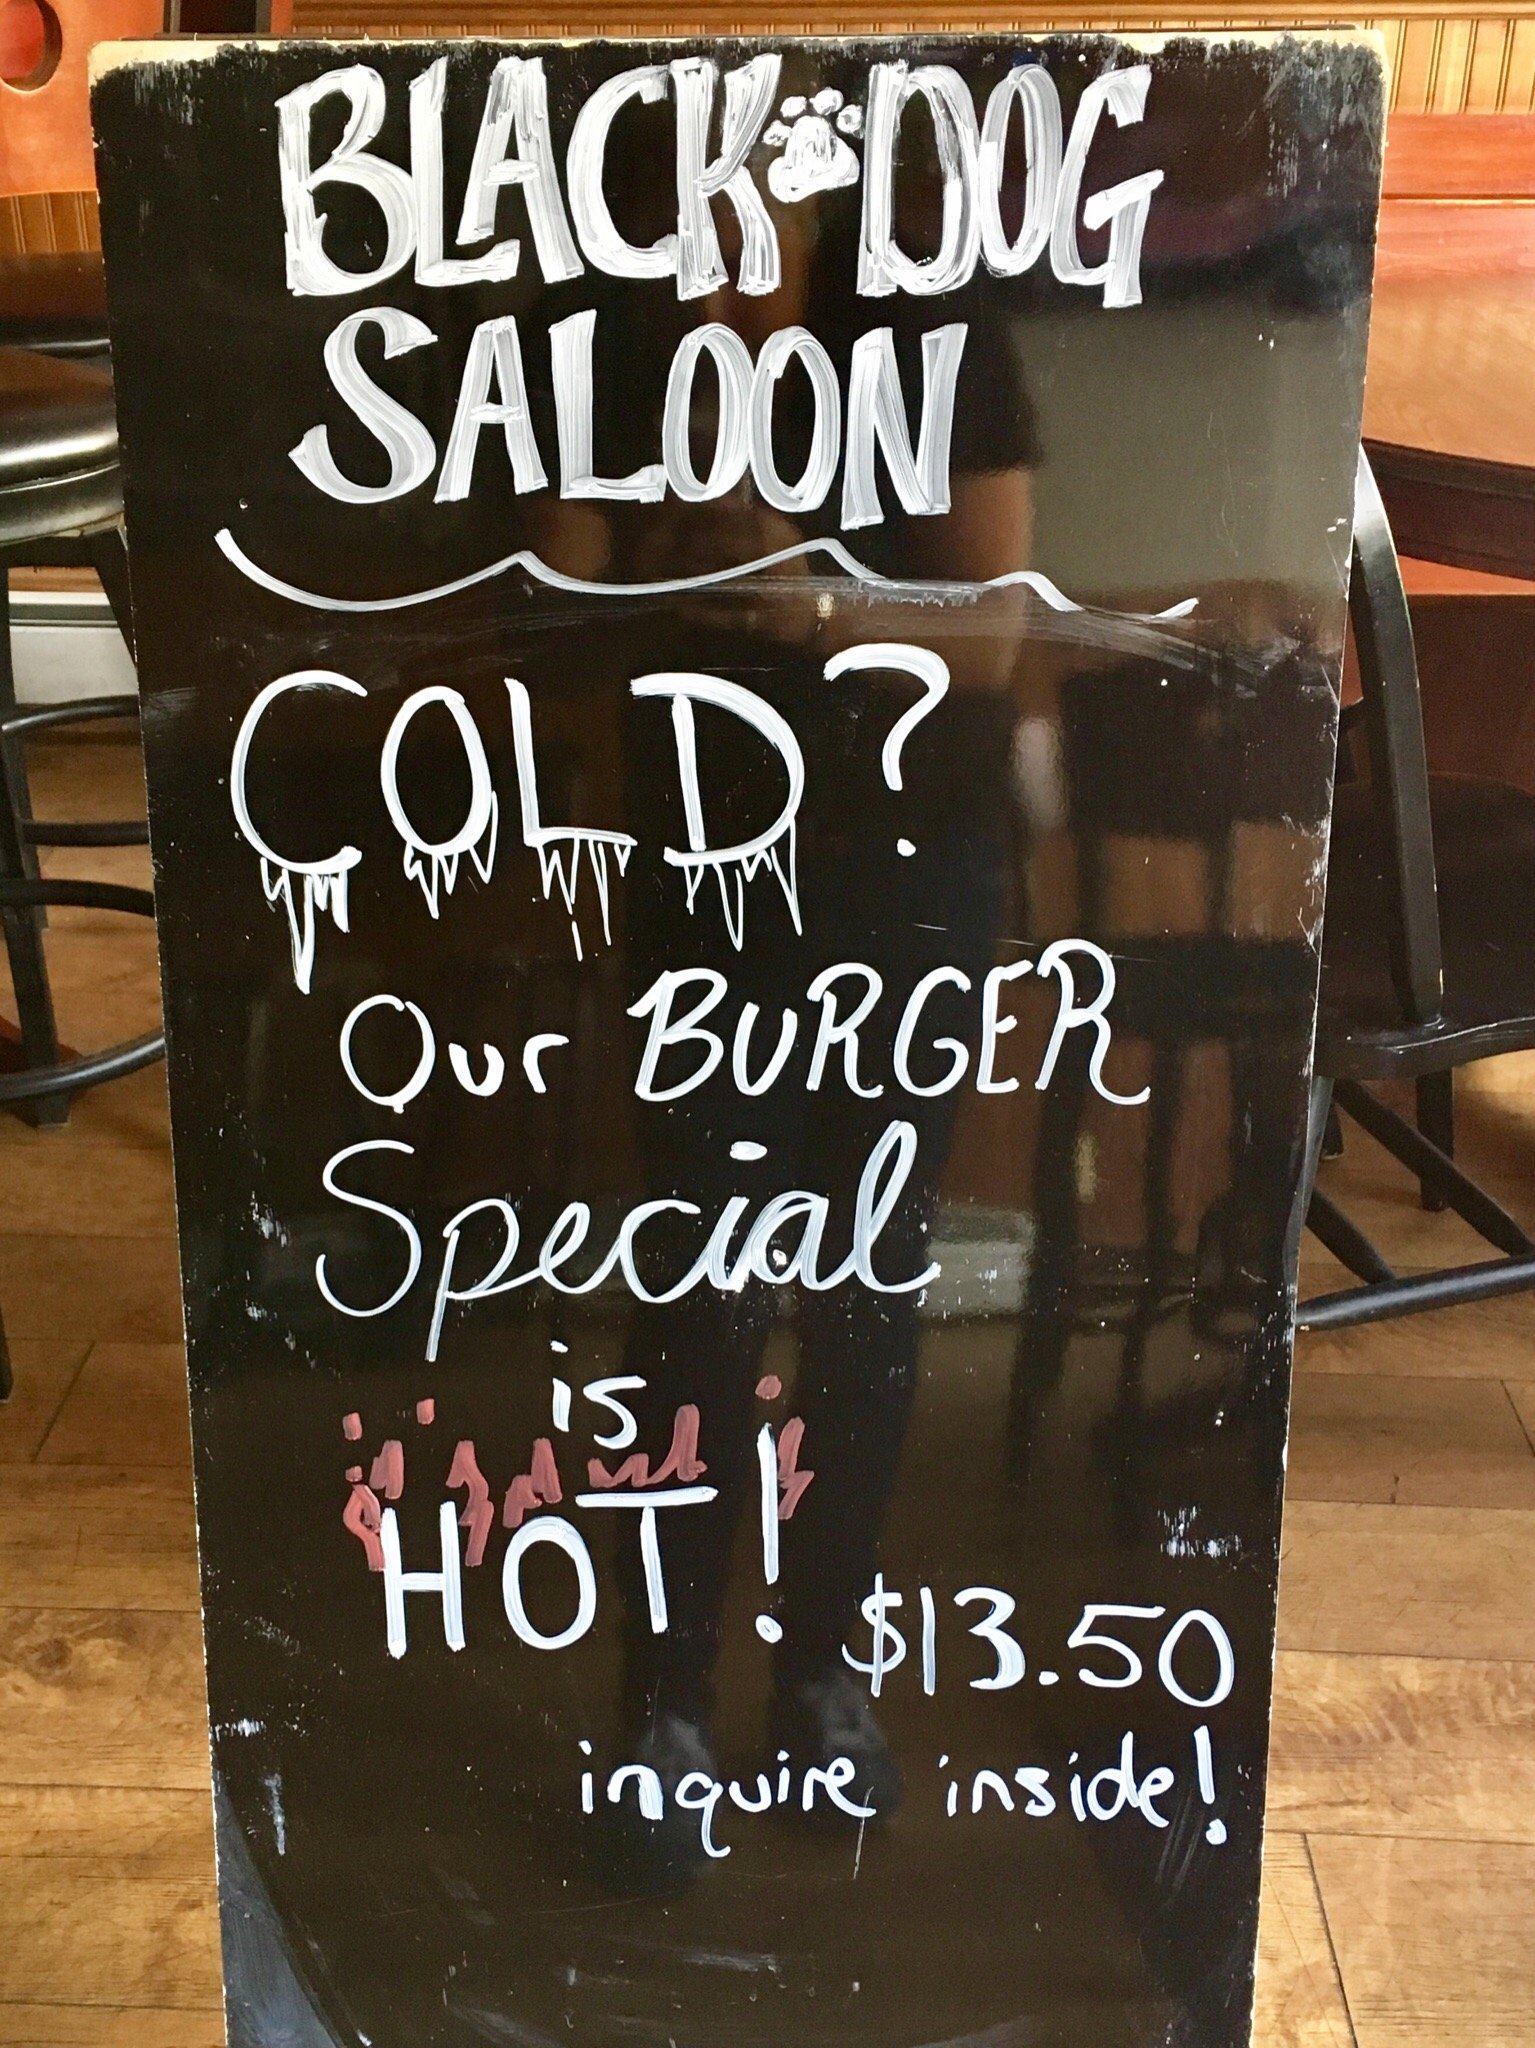 BLACK DOG
SALOON
COLD?
Our BURGER
Special
is
HOT!
$13.50
inquire inside!